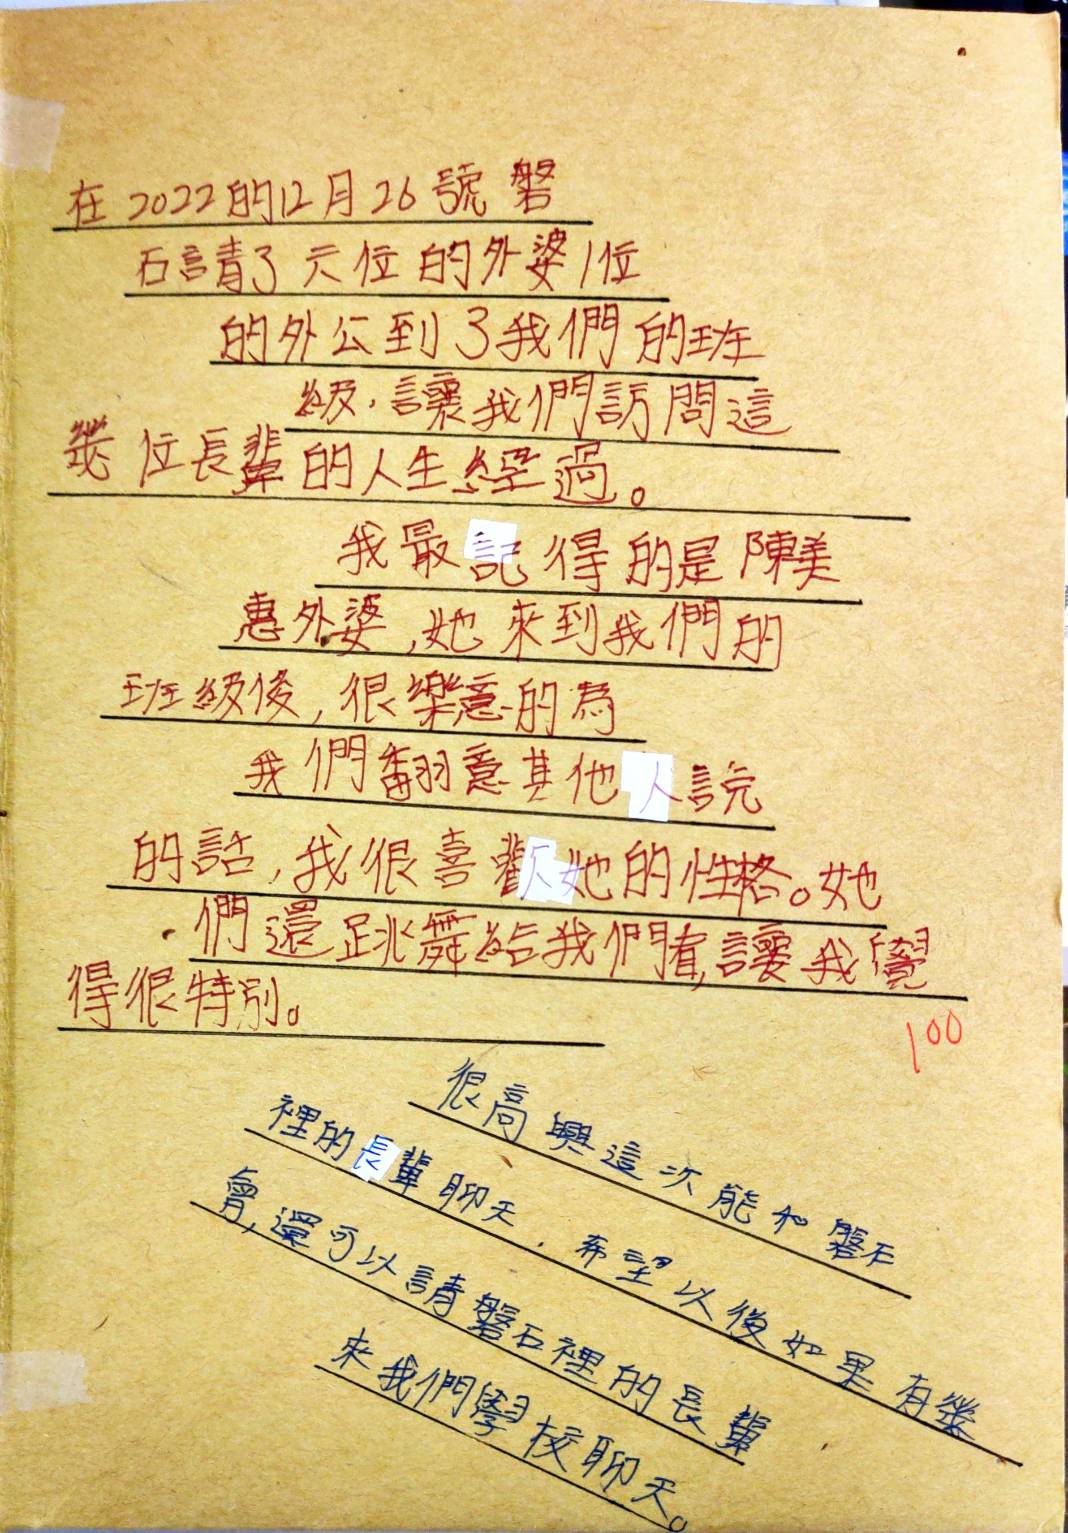 在2022的12月26號磐
石請了六位的外婆1位
的外公到了我們的班
級,讓我們訪問這
幾位長輩的人生經過。
我最記得的是陳美
惠外婆,她來到我們的
班級後,很樂意的為
我們翻意其他人說
的話,我很喜歡她的性格。她
們還跳舞給我們看,讓我覺
得很特別。
100
很高興這次能和磐石
裡的長輩聊天,希望以後如果有幾
會,還可以請磐石裡的長輩
來我們學校聊天。